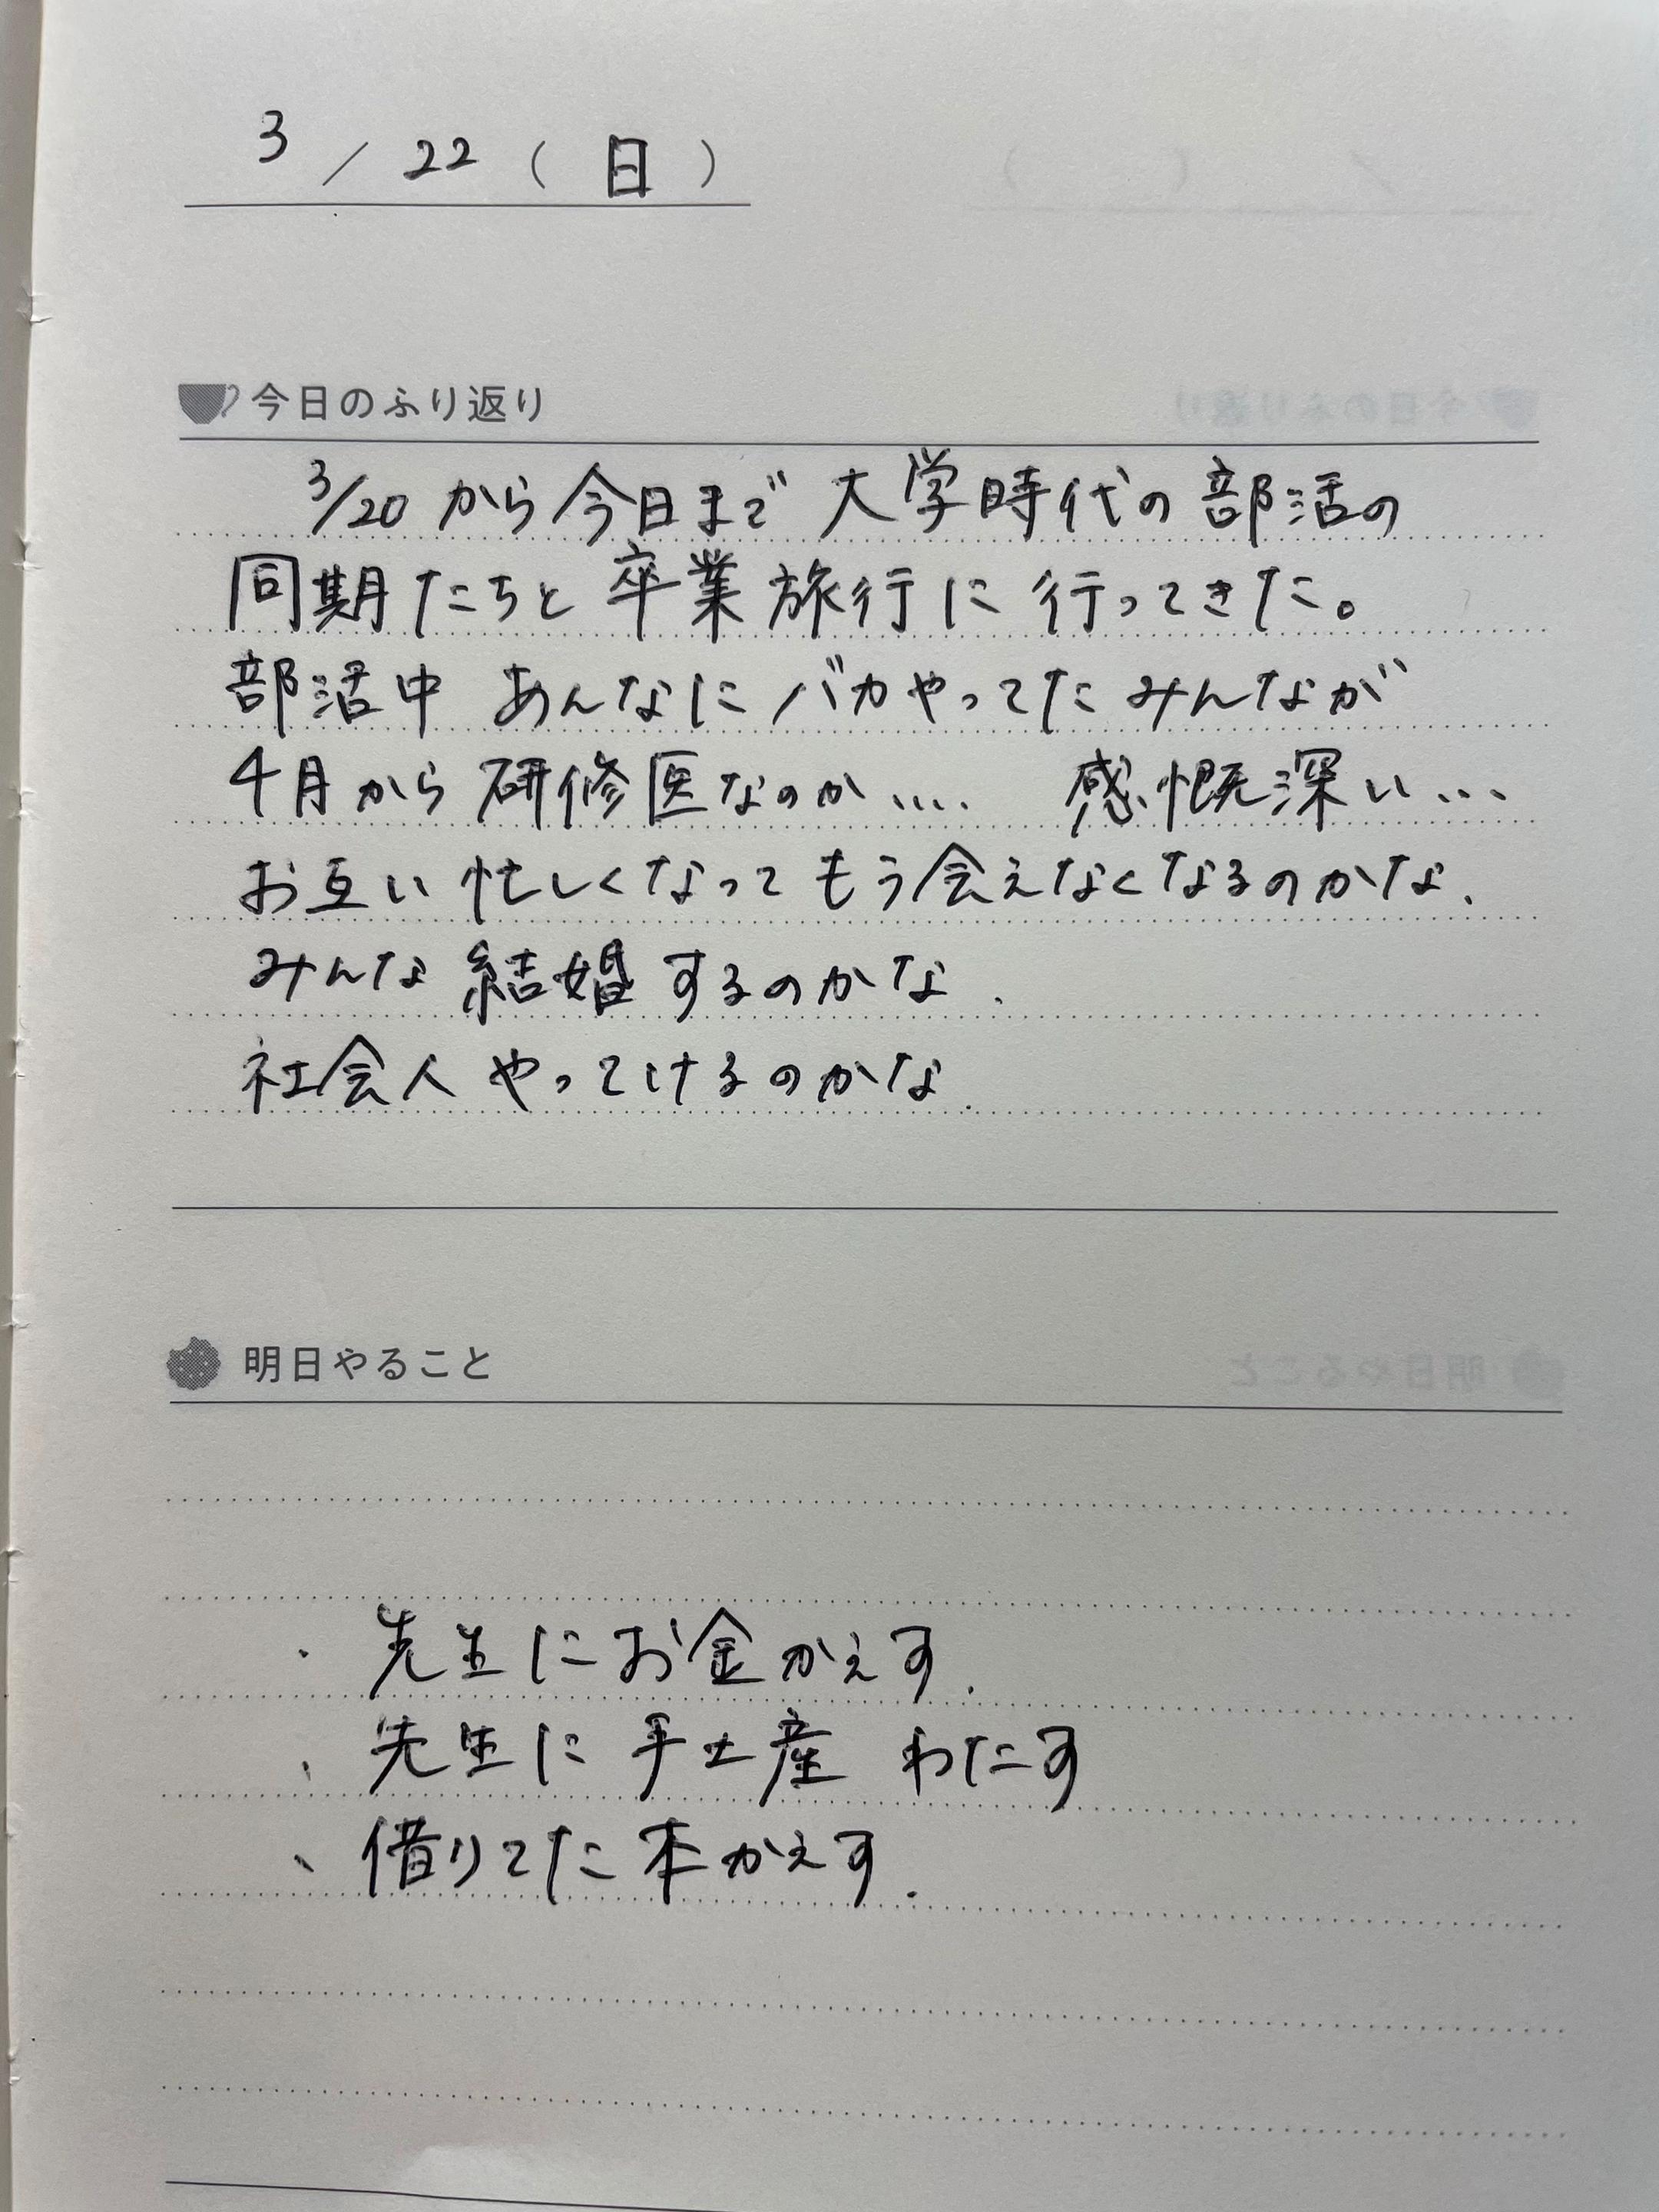 3 / 22 ( 日 )
今日のふり返り
3/20 から今日まで 大学時代の部活の
同期たちと卒業旅行に行ってきた。
部活中 あんなにバカやってたみんなが
4月から研修医なのか.... 感慨深い...
お互い忙しくなってもう会えなくなるのかな.
みんな結婚するのかな.
社会人やってけるのかな.
明日やること
・先生にお金かえす.
、先生に手土産 わたす
、借りてた本かえす.